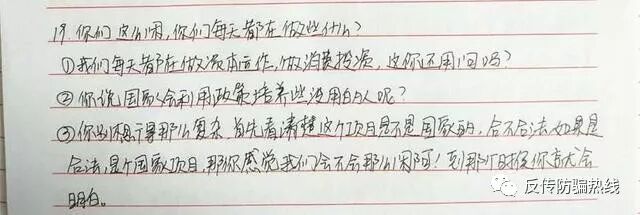 19.你们这么闲,你们每天都在做些什么?
①我们每天都在做资本运作,做消费投资,这你还用问吗?
②你说国家会利用政策培养些没用的人呢?
③你别想得那么复杂,首先看清楚这个项目是不是国家的,合不合法,如果是
合法,是个国家项目,那你感觉我们会不会那么闲阿!到那个时候你就会
明白。
反传防骗热线